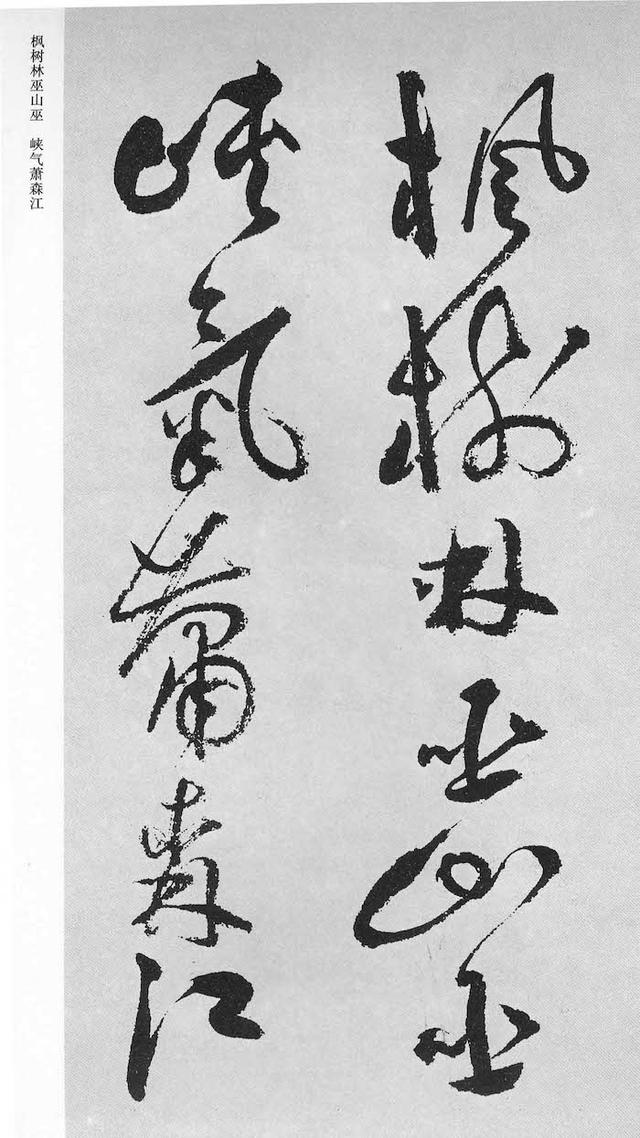 枫樹林巫山巫
峽氣蕭森江
枫树林巫山巫 峡气萧森江